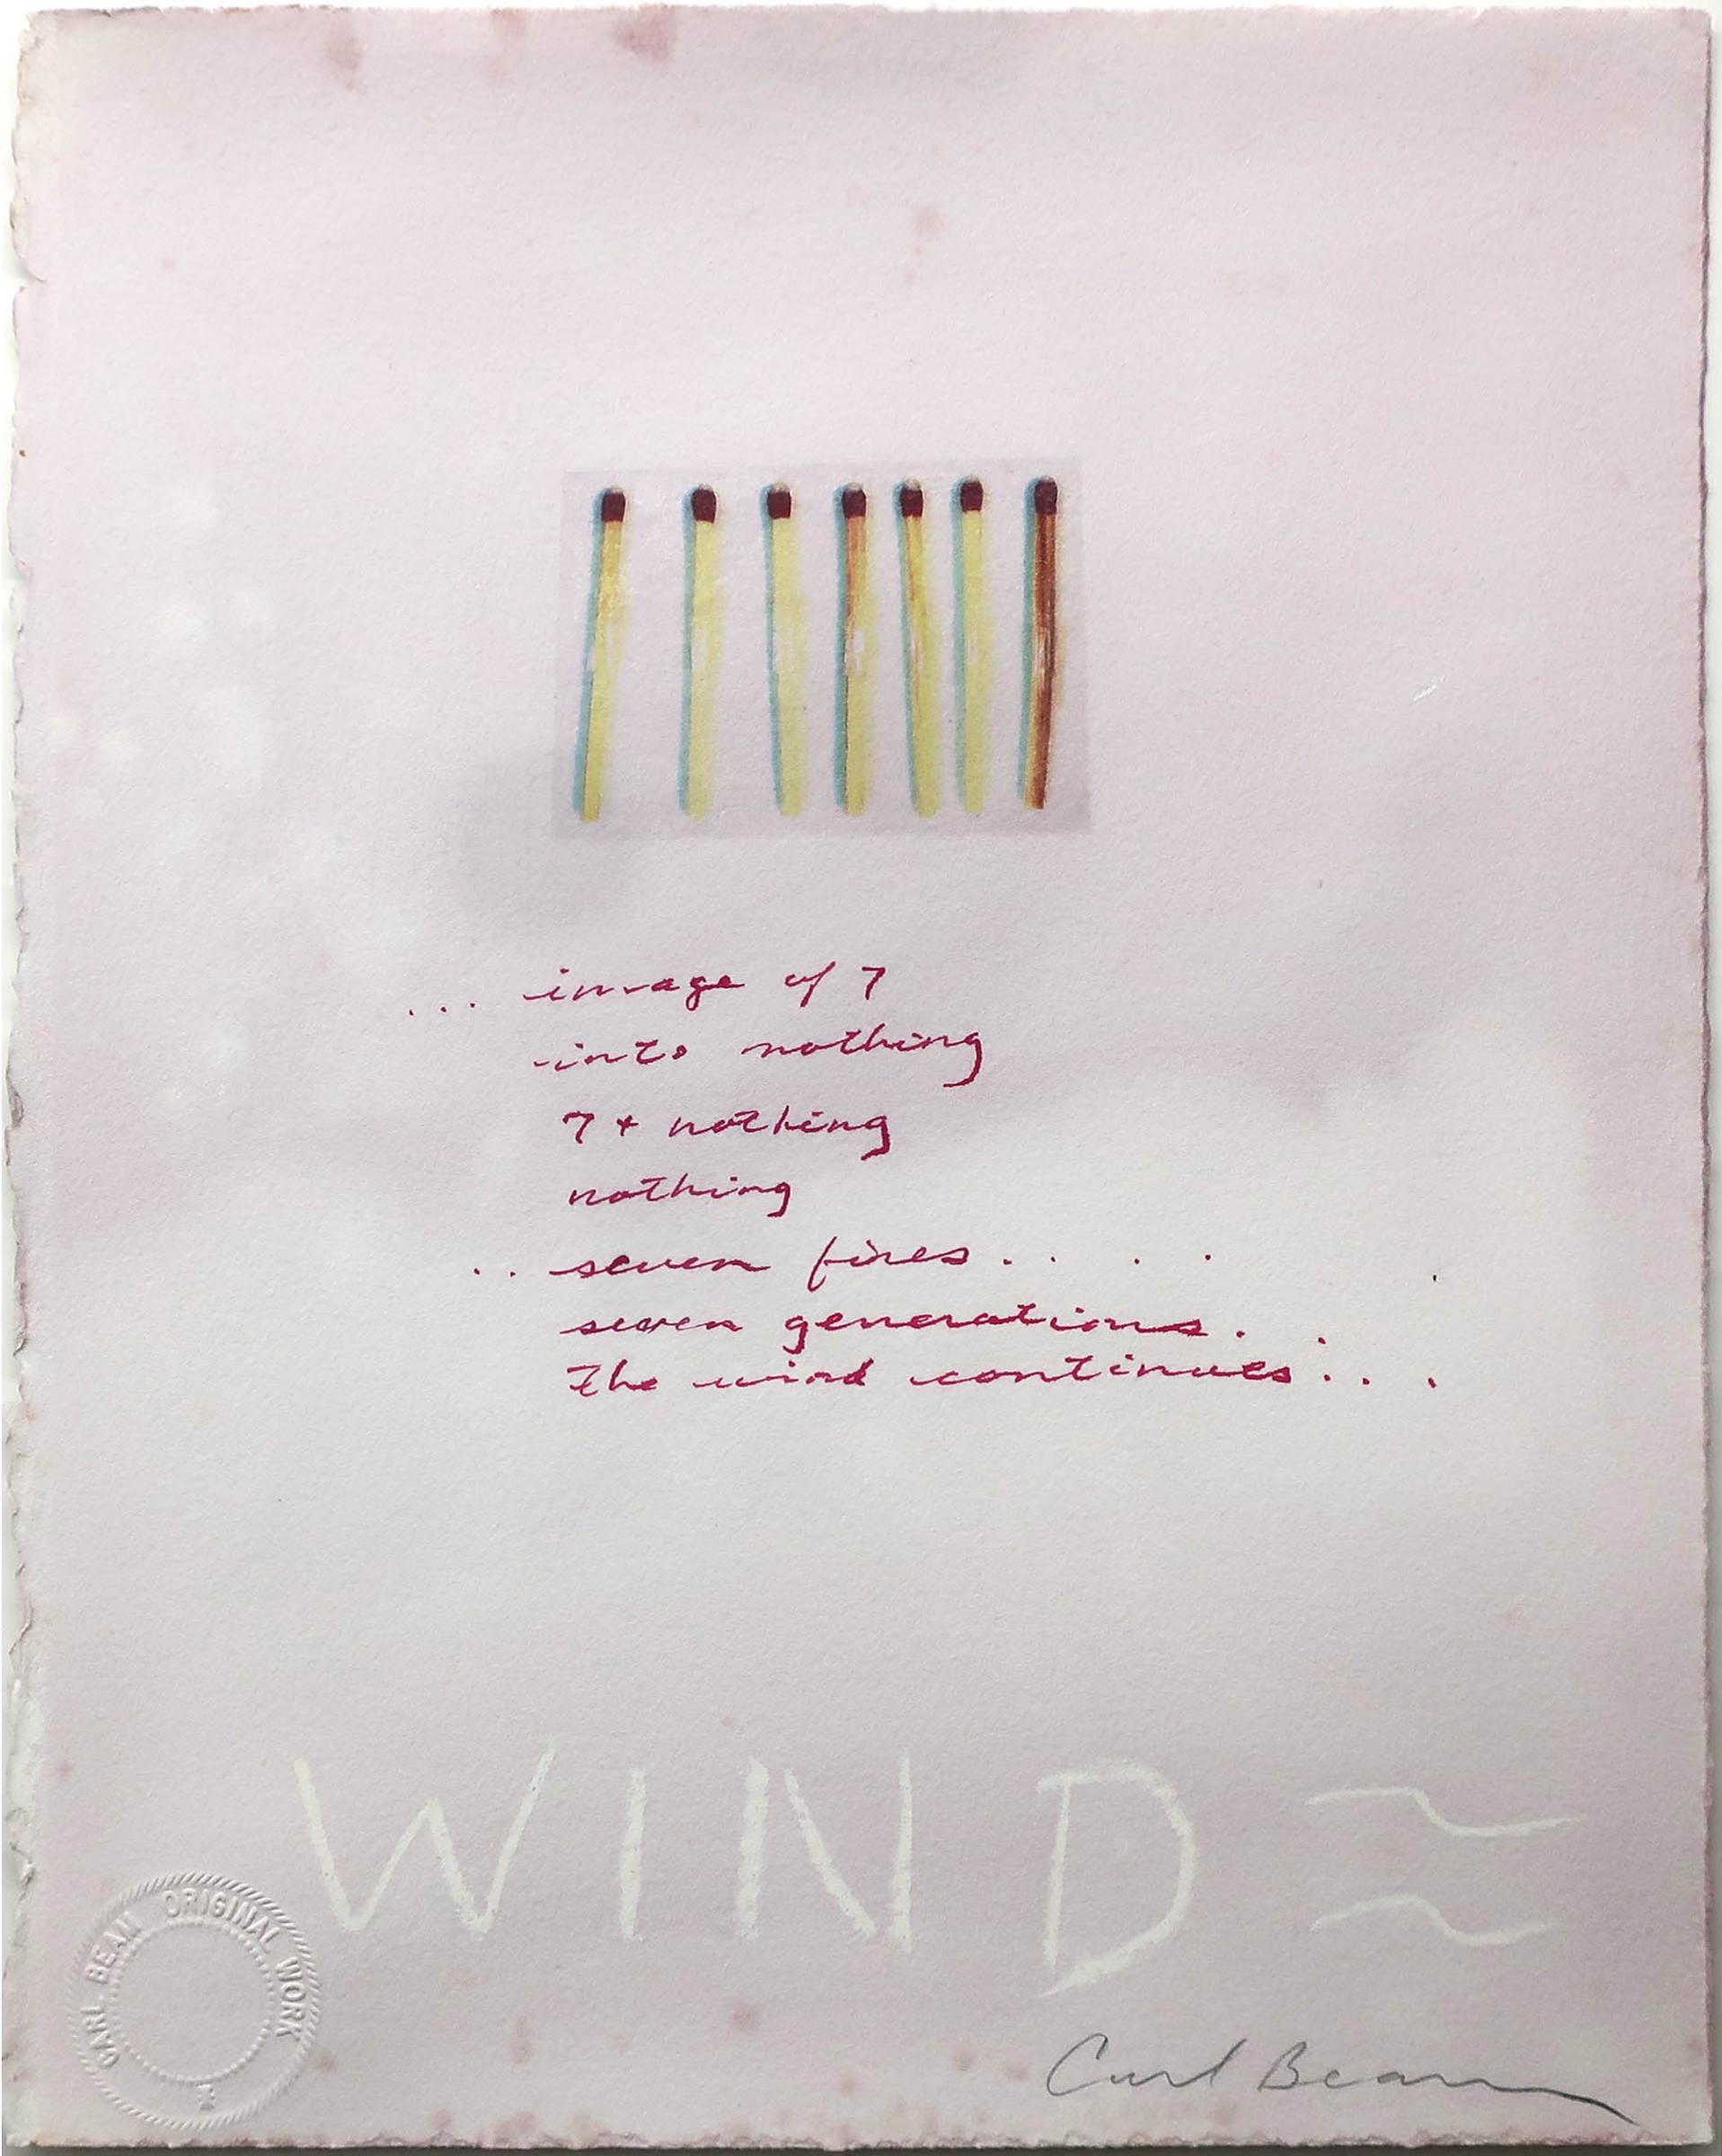 ... image of 7
into nothing
7 + nothing
nothing
.. seven fires.. . .
seven generations. .
The wind continues...
WIND ≈
CARL BEAM ORIGINAL WORK
Carl Beam